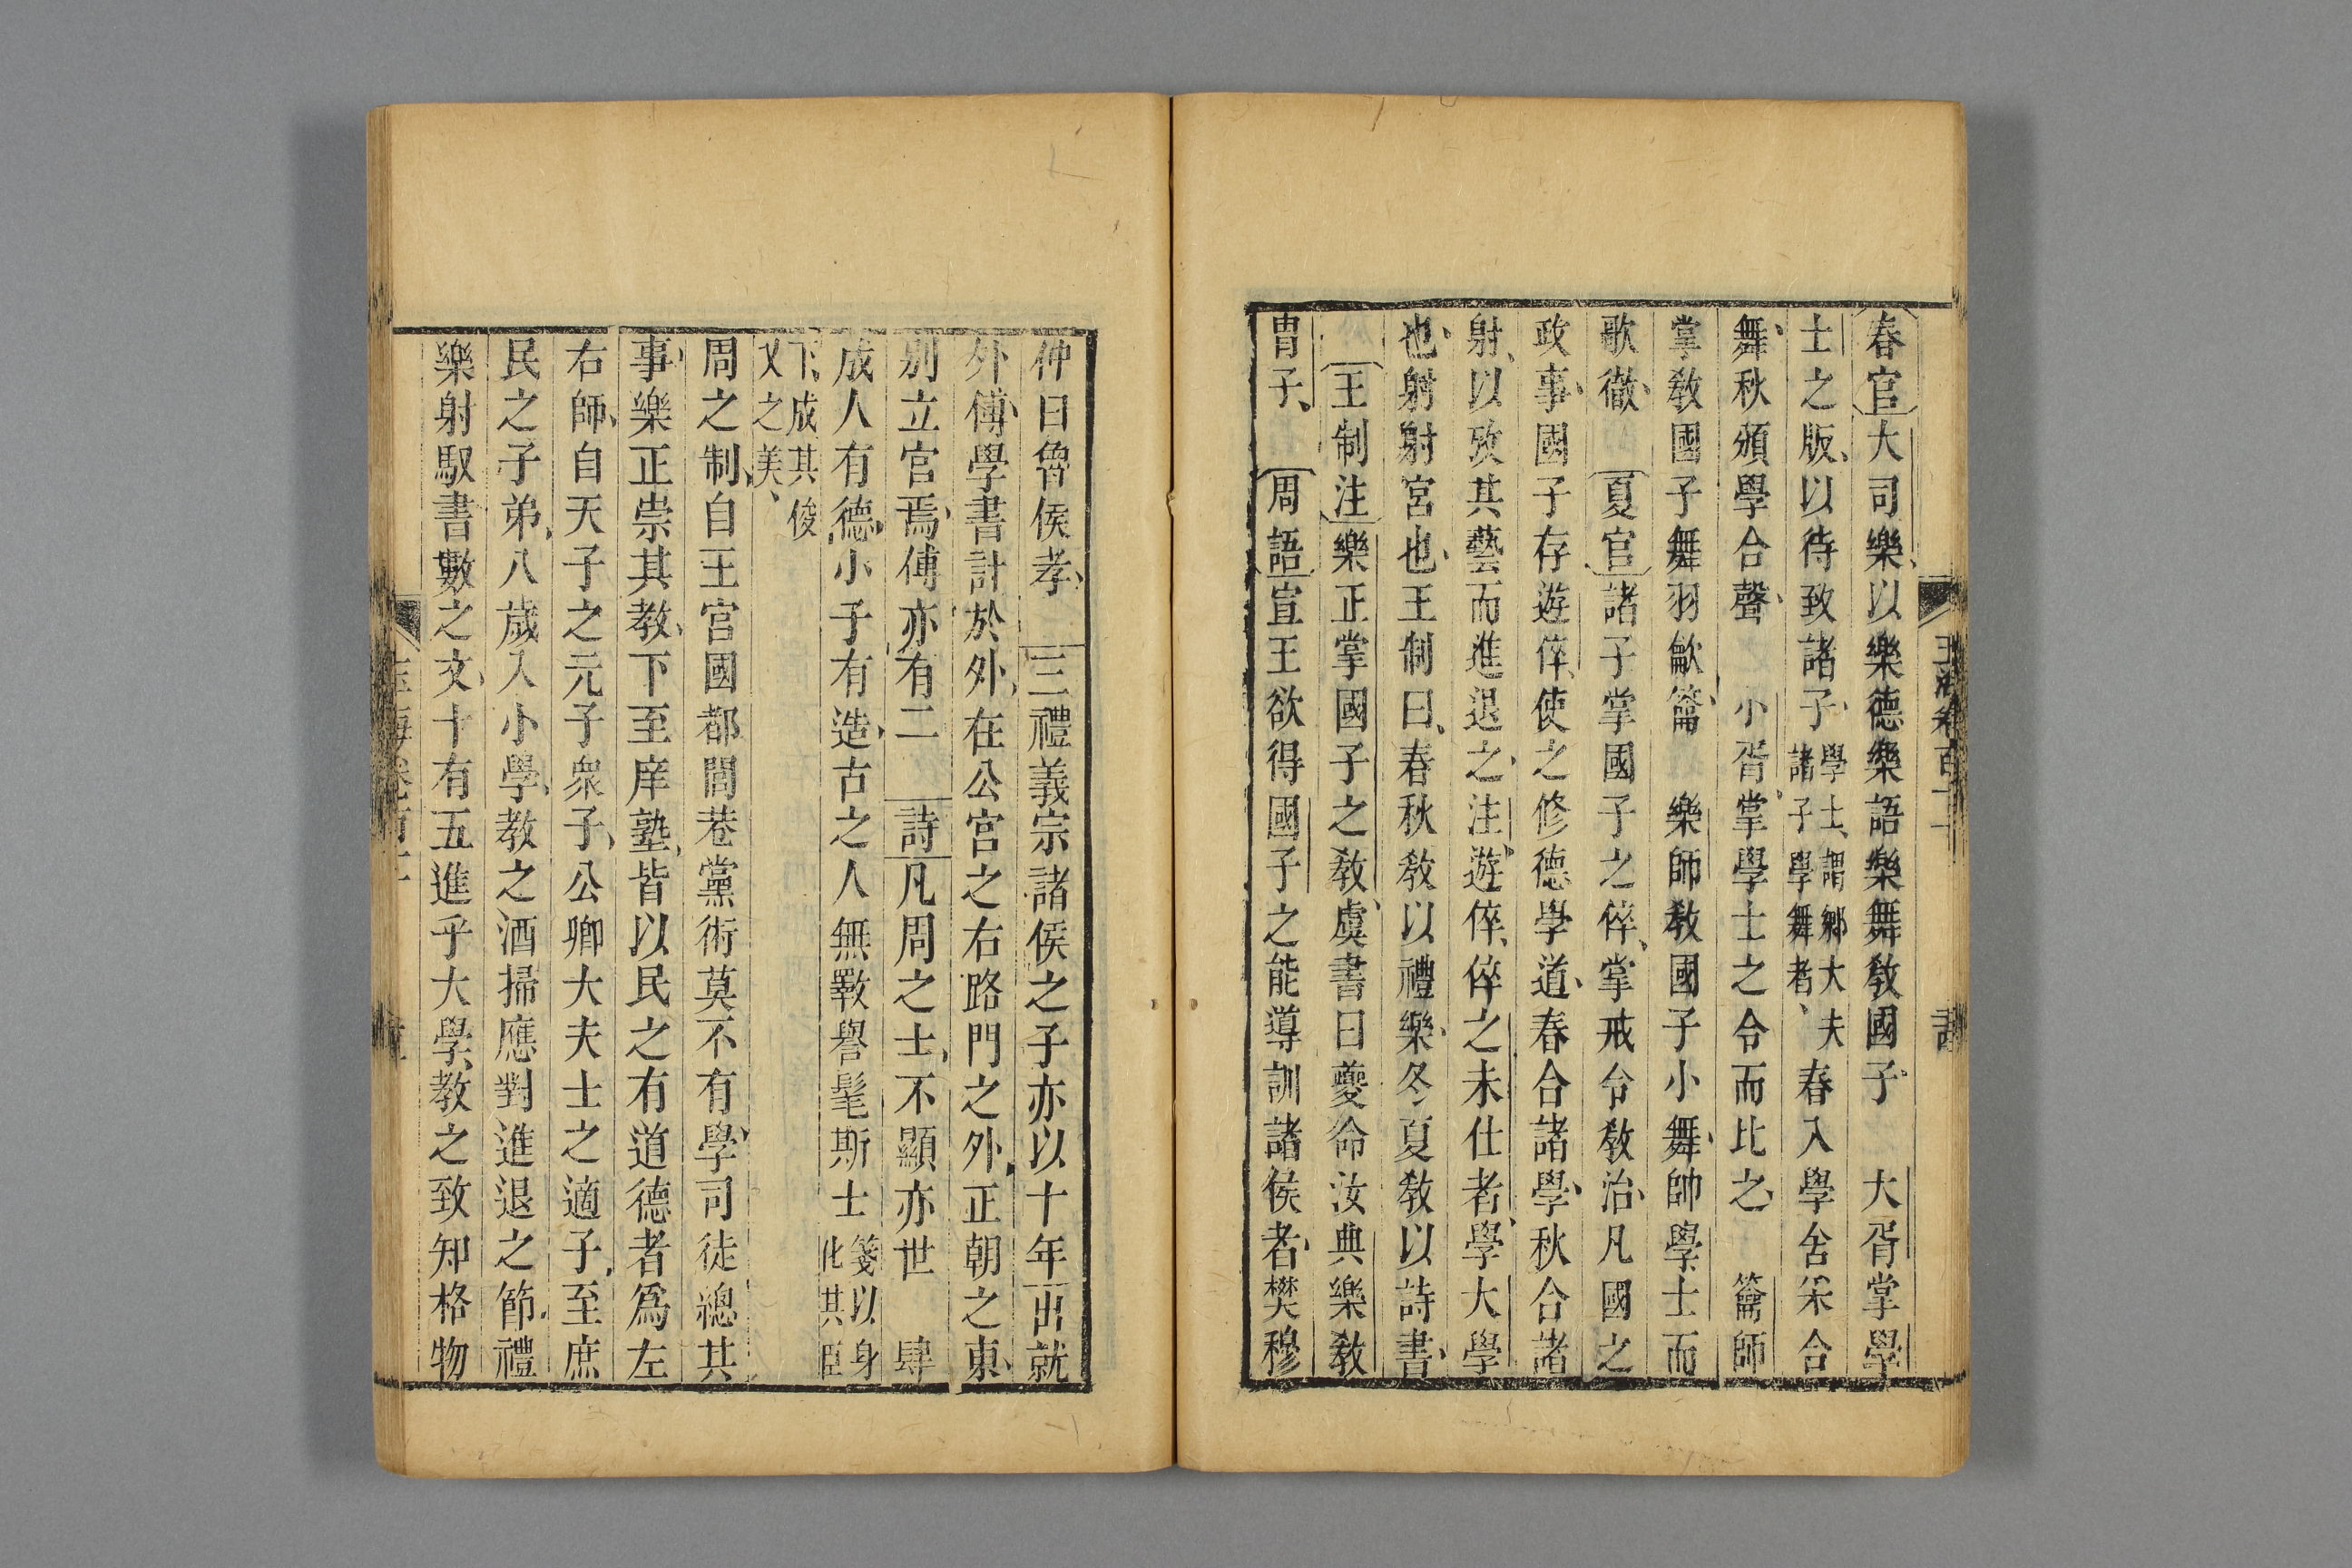 春官大司樂以樂德樂語樂舞敎國子　大胥掌學
士之版以待致諸子學士謂鄉大夫諸子學舞者春入學舍采合
舞秋頒學合聲　小胥掌學士之令而比之　籥師
掌敎國子舞羽龡籥　樂師敎國子小舞帥學士而
歌徹　夏官諸子掌國子之倅掌戒令敎治凡國之
政事國子存遊倅使之修德學道春合諸學秋合諸
射以攷其藝而進退之注遊倅倅之未仕者學大學
也射射宮也王制曰春秋敎以禮樂冬夏敎以詩書
王制注樂正掌國子之敎虞書曰夔命汝典樂敎
胄子　周語宣王欲得國子之能導訓諸侯者樊穆
仲曰魯侯孝　三禮義宗諸侯之子亦以十年出就
外傅學書計於外在公宮之右路門之外正朝之東
別立宮焉傅亦有二　詩凡周之士不顯亦世　肆
成人有德小子有造古之人無斁譽髦斯士箋以身化其臣
下成其俊乂之美
周之制自王宮國都閭巷黨術莫不有學司徒總其
事樂正崇其教下至庠塾皆以民之有道德者爲左
右師自天子之元子衆子公卿大夫士之適子至庶
民之子弟八歲入小學教之洒掃應對進退之節禮
樂射馭書數之文十有五進乎大學教之致知格物